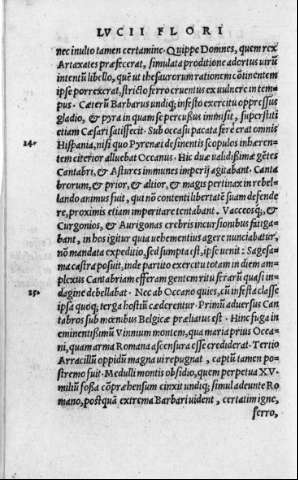 LVCII FLORI
nec inulto tamen certamine. Quippe Domnes, quem rex
Artaxates præfecerat, simulata proditione adortus uirũ
intentũ libello, quẽ ut thesaurorum rationem cõtinentem
ipse porrexerat, stricto ferro cruentus ex uulnere in tem-
pus. Cæterũ Barbarus undiq; infesto exercitu oppressus
gladio, & pyra in quam se percussus immisit, superstiti
etiam Cæsari satisfecit. Sub occasu pacata fere erat omnis
24. Hispania, nisi quo Pyrenæi desinentis scopulos inhæren-
tem citerior alluebat Oceanus. Hic duæ ualidissimæ gẽtes
Cantabri, & Astures immunes imperij agitabant. Canta
brorum, & prior, & altior, & magis pertinax in rebel-
lando animus fuit, qui nõ contenti libertatẽ suam defende
re, proximis etiam imperitare tentabant. Vacceosq;, &
Curgonios, & Aurigonas crebris incursionibus fatiga-
bant, in hos igitur quia uehementius agere nunciabatur,
nõ mandata expeditio, sed sumpta est, ipse uenit: Sagesa-
ma castra posuit, inde partito exercitu totam in diem am-
plexus Cantabriam efferam gentem ritu ferarũ quasi in-
25. dagine debellabat. Nec ab Oceano quies, cũ infesta classe
ipsa quoq; terga hostiũ cæderentur. Primũ aduersus Can
tabros sub mœnibus Belgicæ præliatus est. Hinc fuga in
eminentissimũ Vinnum montem, quẽ maria prius Ocea-
ni, quam arma Romana ascensura esse crediderat. Tertio
Arracillũ oppidũ magna ui repugnat, captũ tamen po-
stremo fuit. Medulli montis obsidio, quem perpetua XV.
miliũ fossa cõpræhensum cinxit undiq; simul adeunte Ro-
mano, postquã extrema Barbari uident, certatim igne,
ferro,